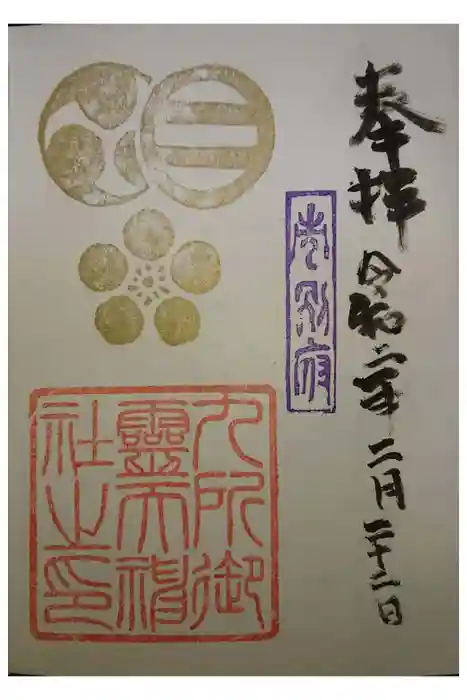 奉拝
令和二年
二月二十二日
別府
九所御
靈天神
社之印